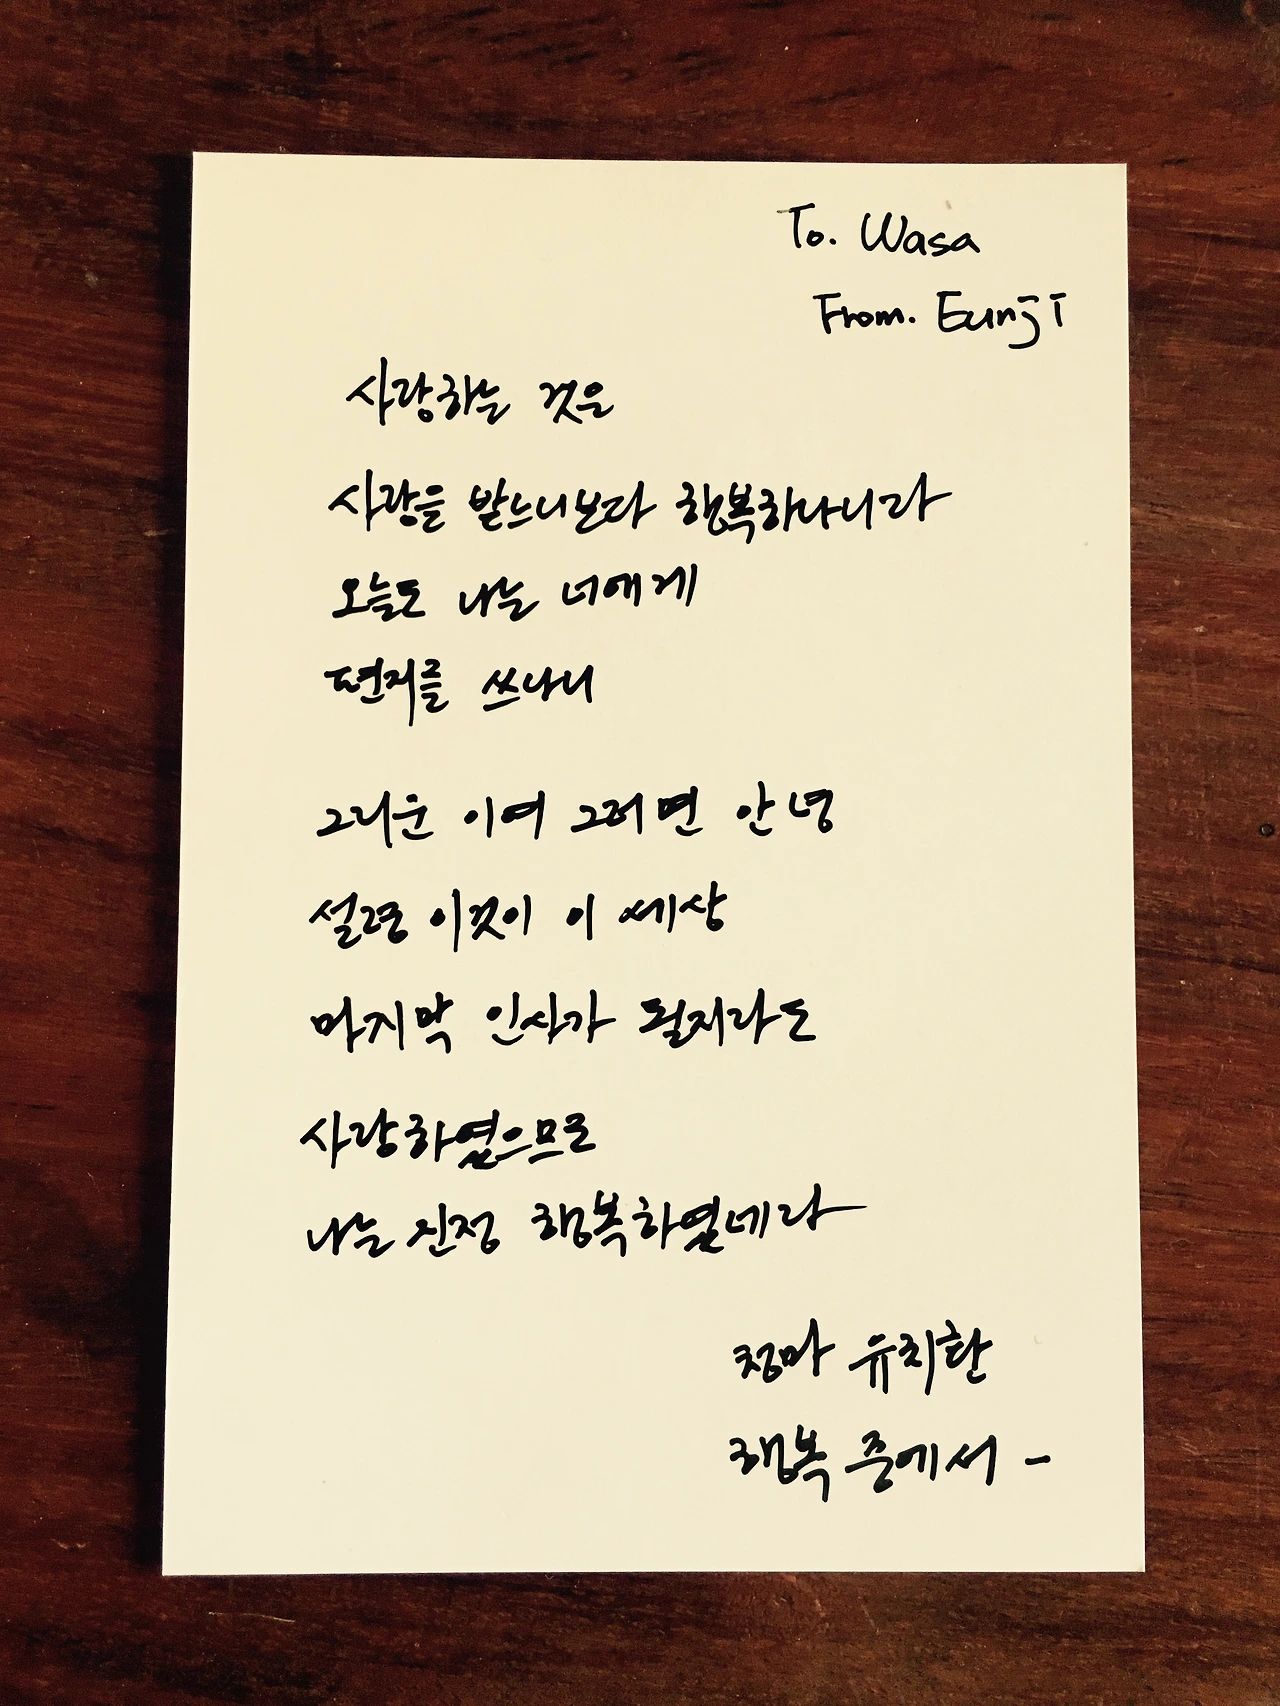 To. Wasa
From. Eunji
사랑하는 것은
사랑을 받느니보다 행복하나니라
오늘도 나는 너에게
편지를 쓰나니
그리운 이여 그러면 안녕
설령 이것이 이 세상
마지막 인사가 될지라도
사랑하였으므로
나는 진정 행복하였네라
청마 유치환
행복 중에서 -